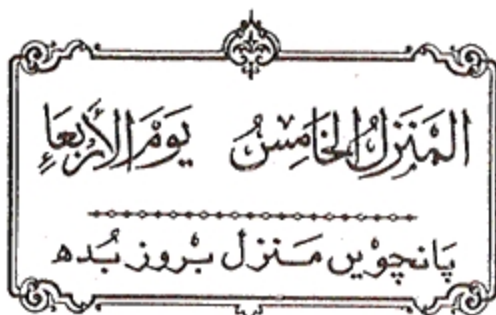 المَنزِلُ الخَامِسُ يَومَ الأَربَعَاءِ
پَانچوْیں مَنزل بْروز بُدھ